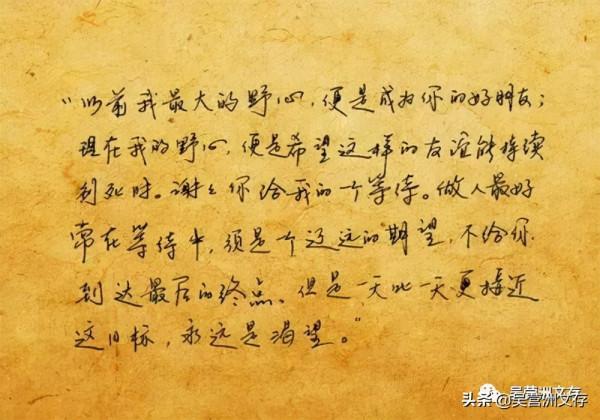 “以前我最大的野心，便是成为你的好朋友；
现在我的野心，便是希望这样的友谊能持续
到死时。谢谢你给我的一个等待。做人最好
常在等待中，须是个辽远的期望，不给你
到达最后的终点。但是一天比一天更接近
这目标，永远是渴望。”
吴营洲文存
头条@吴营洲文存